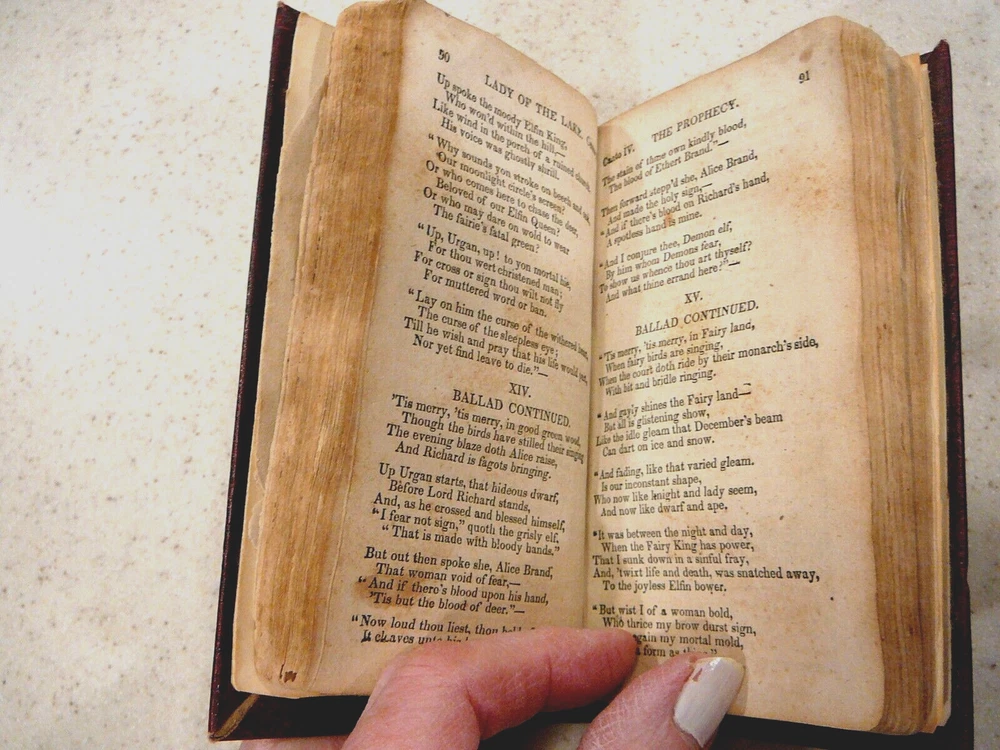 90
LADY OF THE LAKE.
Up spoke the moody Elfin King,
Who won'd within the hill,—
Like wind in the porch of a ruined church,
His voice was ghostly shrill.
"Why sounds yon stroke on beech and oak,
Our moonlight circle's screen?
Or who comes here to chase the deer,
Beloved of our Elfin Queen?
Or who may dare on wold to wear
The fairie's fatal green?
"Up, Urgan, up! to yon mortal hie,
For thou wert christened man;
For cross or sign thou wilt not fly
For muttered word or ban.
"Lay on him the curse of the withered heart,
The curse of the sleepless eye;
Till he wish and pray that his life would part,
Nor yet find leave to die."—
XIV.
BALLAD CONTINUED.
'Tis merry, 'tis merry, in good green wood,
Though the birds have stilled their singing
The evening blaze doth Alice raise,
And Richard is fagots bringing.
Up Urgan starts, that hideous dwarf,
Before Lord Richard stands,
And, as he crossed and blessed himself,
"I fear not sign," quoth the grisly elf,
"That is made with bloody hands."
But out then spoke she, Alice Brand,
That woman void of fear,—
"And if there's blood upon his hand,
'Tis but the blood of deer."—
"Now loud thou liest, thou
It cleaves unto
91
THE PROPHECY.
Canto IV.
The stain of thine own kindly blood,
The blood of Ethert Brand."—
Then forward stepp'd she, Alice Brand,
And made the holy sign,—
"And if there's blood on Richard's hand,
A spotless hand is mine.
"And I conjure thee, Demon elf,
By him whom Demons fear,
To show us whence thou art thyself?
And what thine errand here?"—
XV.
BALLAD CONTINUED.
"'Tis merry, 'tis merry, in Fairy land,
When fairy birds are singing,
When the court doth ride by their monarch's side,
With bit and bridle ringing.
"And gayly shines the Fairy land—
But all is glistening show,
Like the idle gleam that December's beam
Can dart on ice and snow.
"And fading, like that varied gleam.
Is our inconstant shape,
Who now like knight and lady seem,
And now like dwarf and ape,
"It was between the night and day,
When the Fairy King has power,
That I sunk down in a sinful fray,
And, 'twixt life and death, was snatched away,
To the joyless Elfin bower.
"But wist I of a woman bold,
Who thrice my brow durst sign,
again my mortal mold,
form as